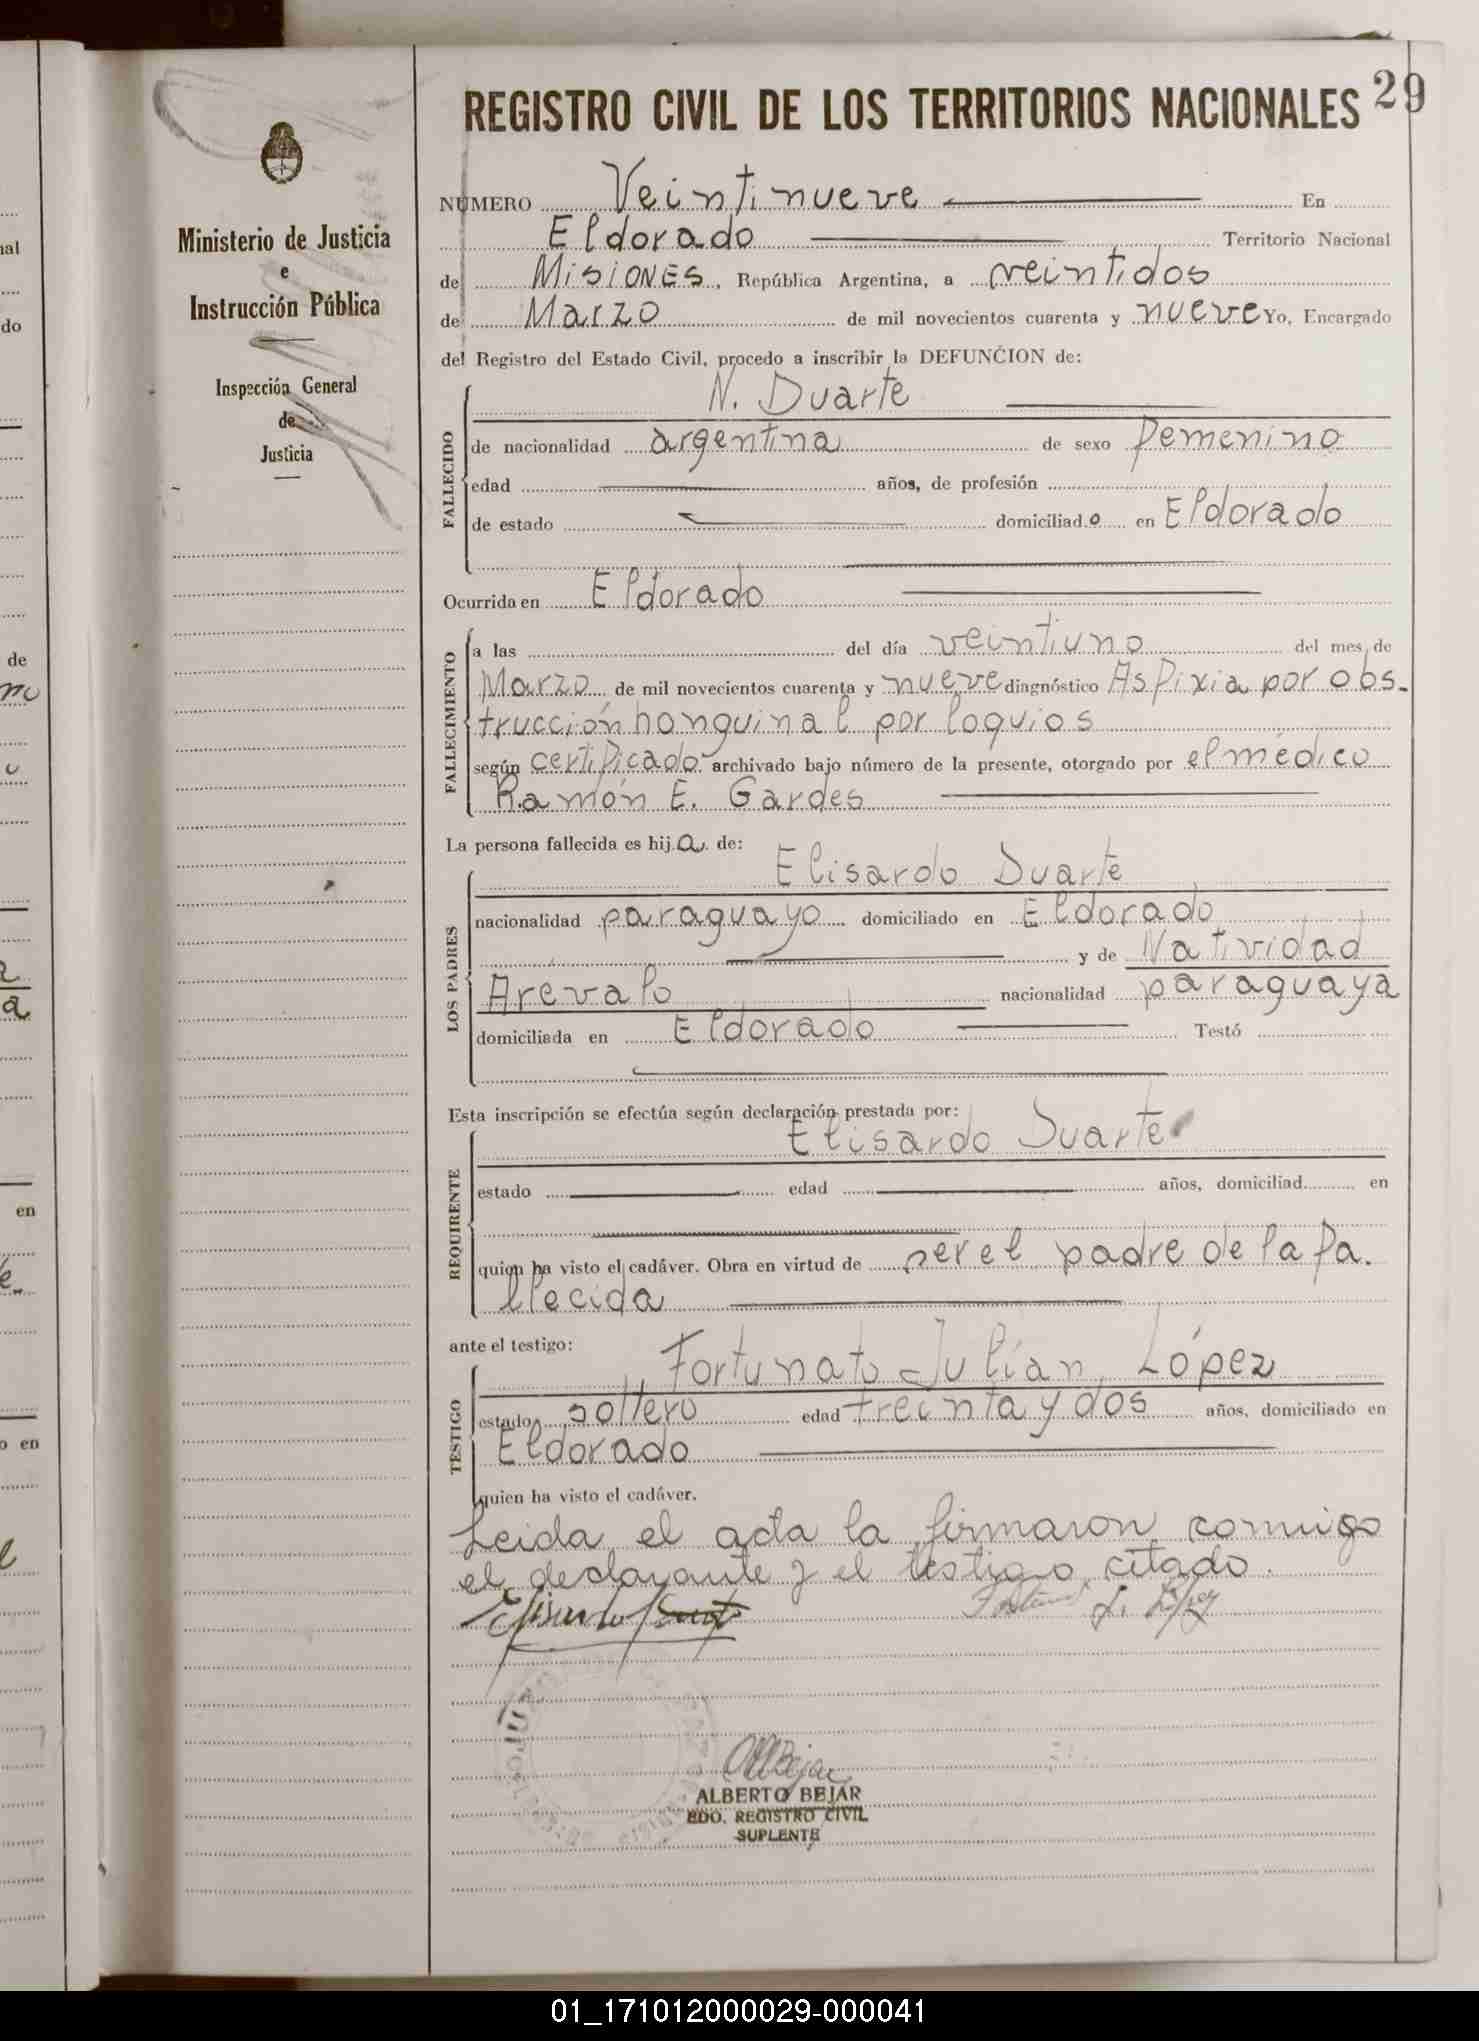 REGISTRO CIVIL DE LOS TERRITORIOS NACIONALES 29
Ministerio de Justicia
e
Instrucción Pública
Inspección General
de
Justicia
NÚMERO Veintinueve En
Eldorado Territorio Nacional
de Misiones, República Argentina, a veintidos
de Marzo de mil novecientos cuarenta y nueve Yo, Encargado
del Registro del Estado Civil, procedo a inscribir la DEFUNCIÓN de:
FALLECIDO
N. Duarte
de nacionalidad argentina de sexo femenino
edad años, de profesión
de estado domiciliado en Eldorado
Ocurrida en Eldorado
FALLECIMIENTO
a las del día veintiuno del mes de
Marzo de mil novecientos cuarenta y nueve diagnóstico Asfixia por obs-
trucción honguinal por loquios
según certificado archivado bajo número de la presente, otorgado por el médico
Ramón E. Gardes
La persona fallecida es hija de:
LOS PADRES
Elisardo Duarte
nacionalidad paraguayo domiciliado en Eldorado
y de Natividad
Arévalo nacionalidad paraguaya
domiciliada en Eldorado Testó
Esta inscripción se efectúa según declaración prestada por:
REQUIRENTE
Elisardo Duarte
estado edad años, domiciliad en
quien ha visto el cadáver. Obra en virtud de ser el padre de la fa-
llecida
ante el testigo:
TESTIGO
Fortunato Julián López
estado soltero edad treinta y dos años, domiciliado en
Eldorado
quien ha visto el cadáver.
Leida el acta la firmaron conmigo
el declarante y el testigo citado.
Elisardo Duarte Fortunato J. López
ABejar
ALBERTO BEJAR
EDO. REGISTRO CIVIL
SUPLENTE
01_171012000029-000041